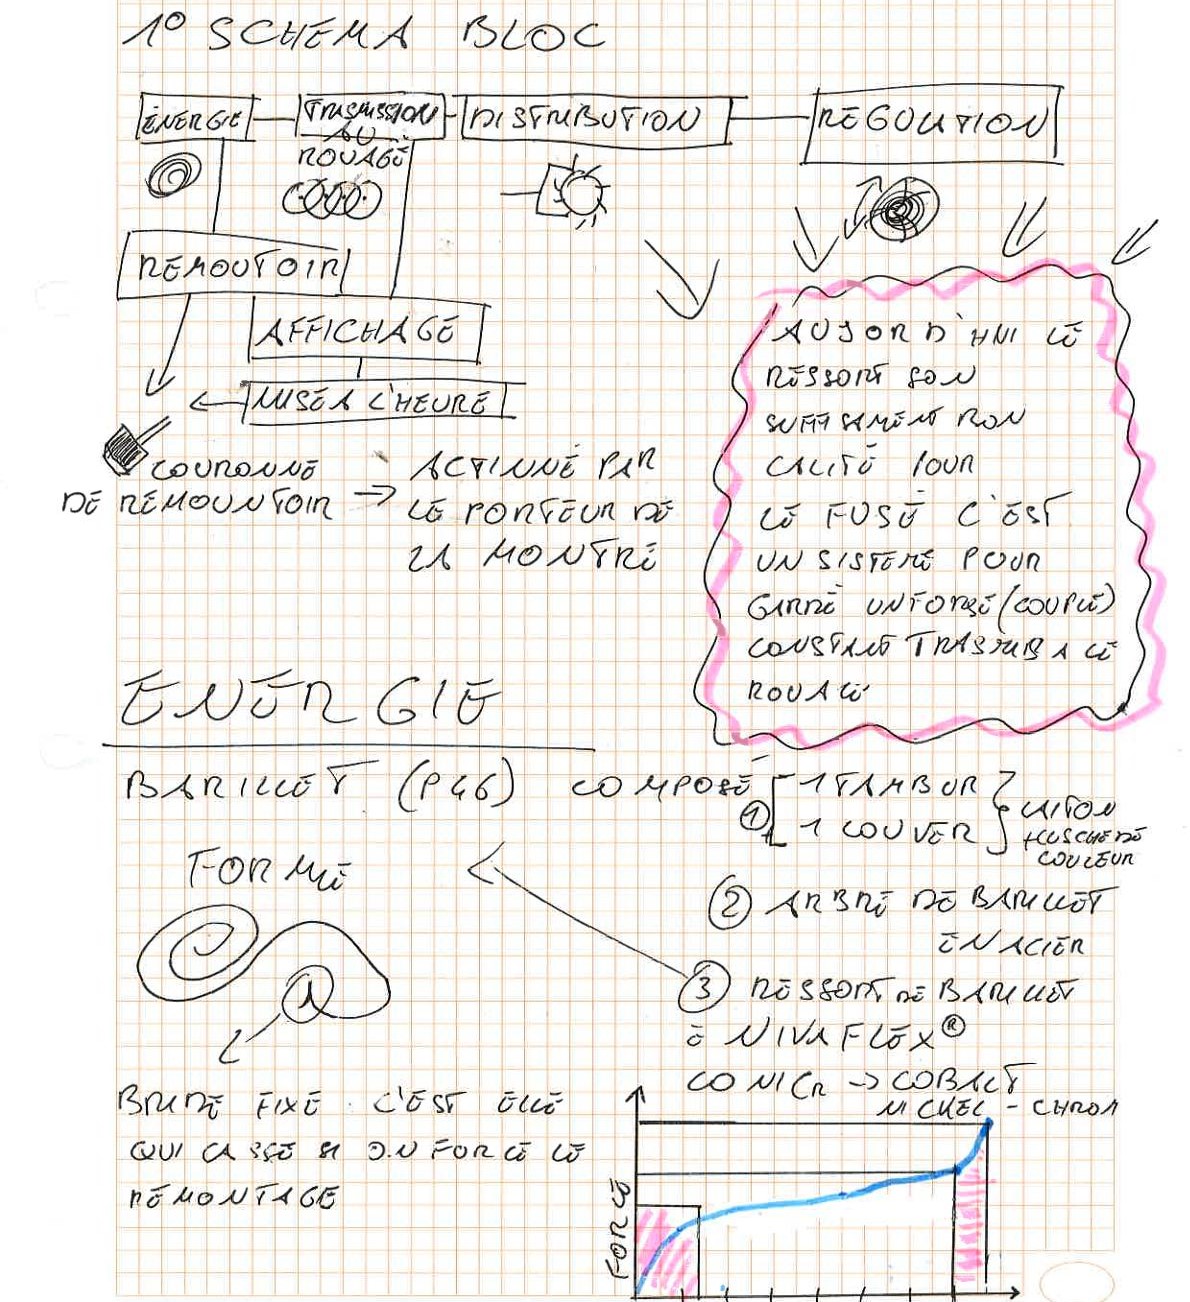 1° SCHEMA BLOC
ÉNERGIE
TRASMISSION
AU
ROUAGE
DISTRIBUTION
REGULATION
REMOUTOIR
AFFICHAGE
MISE A L'HEURE
COURONNE
DE REMOUNTOIR → ACTINNÉ PAR
LE PORTEUR DE
LA MONTRE
AUJORD'HUI LE
RESSORT SON
SUFFISAMENT BON
CALITÉ POUR
LE FUSÉ C'EST
UN SISTEME POUR
GARDÉ UN FORSE (COUPLE)
CONSTANT A LE
ROUAGE
ENERGIE
BARILLET (P46) COMPOSÉ
① 1 TAMBUR
1 COUVER
LAITON
COULEUR
② ARBRE DE BARILLET
EN ACIER
③ RESSORT DE BARILLET
E NIVAFLEX®
CO NI CR → COBALT
NICKEL - CHROM
FORME
BRIDE FIXE C'EST ELLE
QUI CASSE SI ON FORCE LE
REMONTAGE
FORCE